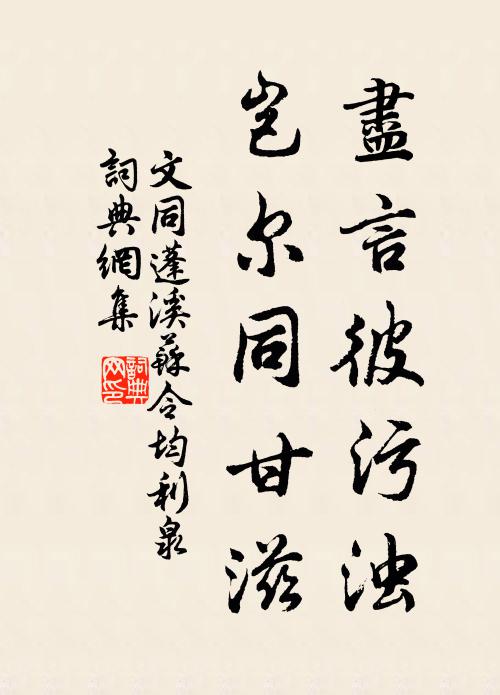 盡言彼污浊
岂尔同甘滋
文同蓬溪蘇令均利泉
詞典網集
詞典网印